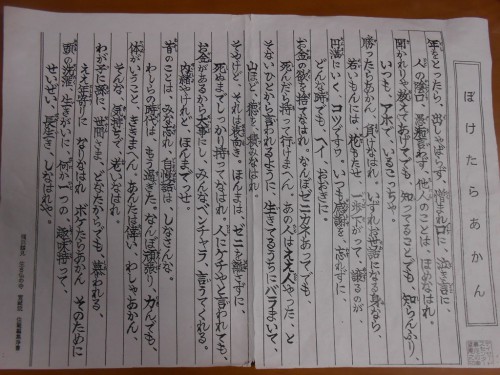 ぼけたらあかん
年をとったら、出しゃばらず、憎まれ口に、泣き言に、
人の陰口、愚痴言わず、他人のことは、ほめなはれ。
聞かれりゃ教えてあげても、知ってることでも、知らんふり、
いつも、アホで、いるこっちゃ。
勝ったらあかん、負けなはれ。いずれお世話になる身なら、
若いもんには、花もたせ、一歩下がって、譲るのが、
円満にいく、コツですわ。いつも感謝を、忘れずに、
どんな時でも、へイ、おおきに。
お金の欲を、捨てなはれ。なんぼゼニカネあってでも、
死んだら持って行けまへん。あの人はええ人やった、と
そないひとから言われるように、生きてるうちにバラまいて、
山ほど、徳を、積みなはれ。
そやけど、それは表向き。ほんまは、ゼニを、離さずに、
死ぬまでしっかり、持ってなはれ。人にケチやと言われても、
お金があるから大事にし、みんな、ベンチャラ、言うてくれる。
内緒やけれど、ほんまでっせ。
昔のことは、みな忘れ、自慢話は、しなさんな。
わしらの時代は、もう過ぎた。なんぼ頑張り、力んでも、
体がいうこと、ききまへん。あんたは偉い、わしゃあかん、
そんな気持ちで、おいなはれ。
わが子に孫に、世間さま、どなたからでも、慕われる、
ええ年寄りに、なりなはれ。ボケたらあかん そのために
頭の洗濯、生きがいに、何か一つの、趣味持って、
せいぜい、長生き、しなはれや。